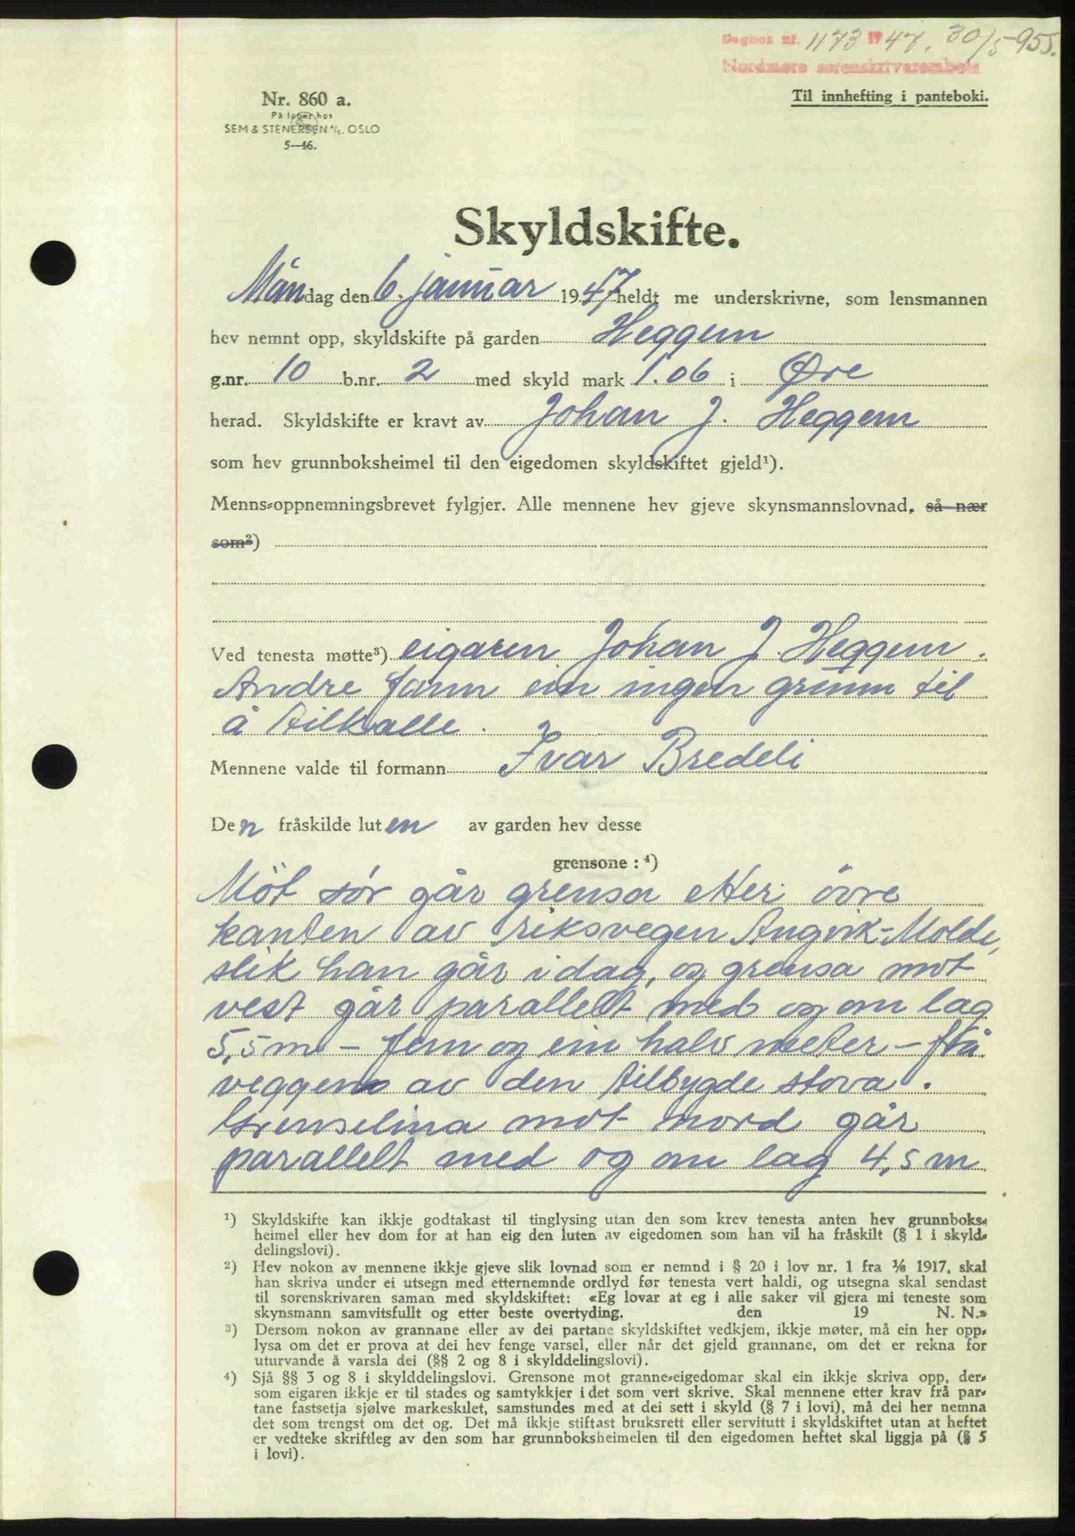 Dagbok nr. 1173 1947. 30/5-955.
Nordmøre sorenskrivarembete
Til innhefting i panteboki.
Nr. 860 a.
På lager hos
SEM & STENERSEN A/S, OSLO
5—46.
Skyldskifte.
Måndag den 6. januar 1947 heldt me underskrivne, som lensmannen
hev nemnt opp, skyldskifte på garden Heggem
g.nr. 10 b.nr. 2 med skyld mark 1.06 i Øre
herad. Skyldskifte er kravt av Johan J. Heggem
som hev grunnboksheimel til den eigedomen skyldskiftet gjeld¹).
Menns-oppnemningsbrevet fylgjer. Alle mennene hev gjeve skynsmannslovnad, så nær
som²)
Ved tenesta møtte³) eigaren Johan J. Heggem.
Andre fann ein ingen grunn til
å tilkalle.
Mennene valde til formann Ivar Bredeli
Den fråskilde luten av garden hev desse
grensone : ⁴)
Möt sør går grensa etter övre
kanten av riksvegen Angvik-Molde,
slik han går i dag, og grensa mot
vest går parallelt med og om lag
5,5 m – fem og ein halv meter – frå
veggen av den tilbygde stova.
Grenselina mot nord går
parallelt med og om lag 4,5 m
¹) Skyldskifte kan ikkje godtakast til tinglysing utan den som krev tenesta anten hev grunnboks-
heimel eller hev dom for at han eig den luten av eigedomen som han vil ha fråskilt (§ 1 i skyld-
delingslovi).
²) Hev nokon av mennene ikkje gjeve slik lovnad som er nemnd i § 20 i lov nr. 1 fra ⅙ 1917, skal
han skriva under ei utsegn med etternemnde ordlyd før tenesta vert haldi, og utsegna skal sendast
til sorenskrivaren saman med skyldskiftet: «Eg lovar at eg i alle saker vil gjera mi teneste som
skynsmann samvitsfullt og etter beste overtyding. den 19 N. N.»
³) Dersom nokon av grannane eller av dei partane skyldskiftet vedkjem, ikkje møter, må ein her opp-
lysa om det er prova at dei hev fenge varsel, eller når det gjeld grannane, om det er rekna for
uturvande å varsla dei (§§ 2 og 8 i skylddelingslovi).
⁴) Sjå §§ 3 og 8 i skylddelingslovi. Grensone mot granne-eigedomar skal ein ikkje skriva opp, der-
som eigaren ikkje er til stades og samtykkjer i det som vert skrive. Skal mennene etter krav frå par-
tane fastsetja sjølve markeskilet, samstundes med at dei sett i skyld (§ 7 i lovi), må dei her nemna
det som trengst om det og. Det må ikkje stiftast bruksrett eller servitutt i skyldskiftet utan at heftet
er vedteke skriftleg av den som har grunnboksheimelen til den eigedomen heftet skal liggja på (§ 5
i lovi).